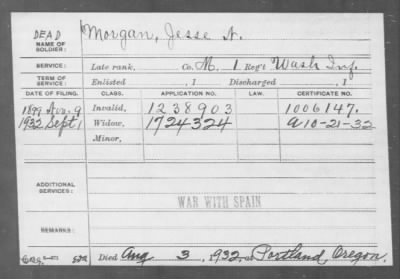 DEAD
NAME OF SOLDIER: Morgan, Jesse N.
SERVICE: Late rank, Co. M, 1 Reg't Wash Inf.
TERM OF SERVICE: Enlisted , 1 Discharged , 1
DATE OF FILING. CLASS. APPLICATION NO. LAW. CERTIFICATE NO.
1899 Aug. 9 Invalid, 1238903 1006147.
1932 Sept 1 Widow, 1724324 A-10-21-32
Minor,
ADDITIONAL SERVICES:
WAR WITH SPAIN
REMARKS:
Died Aug 3, 1932, at Portland, Oregon.